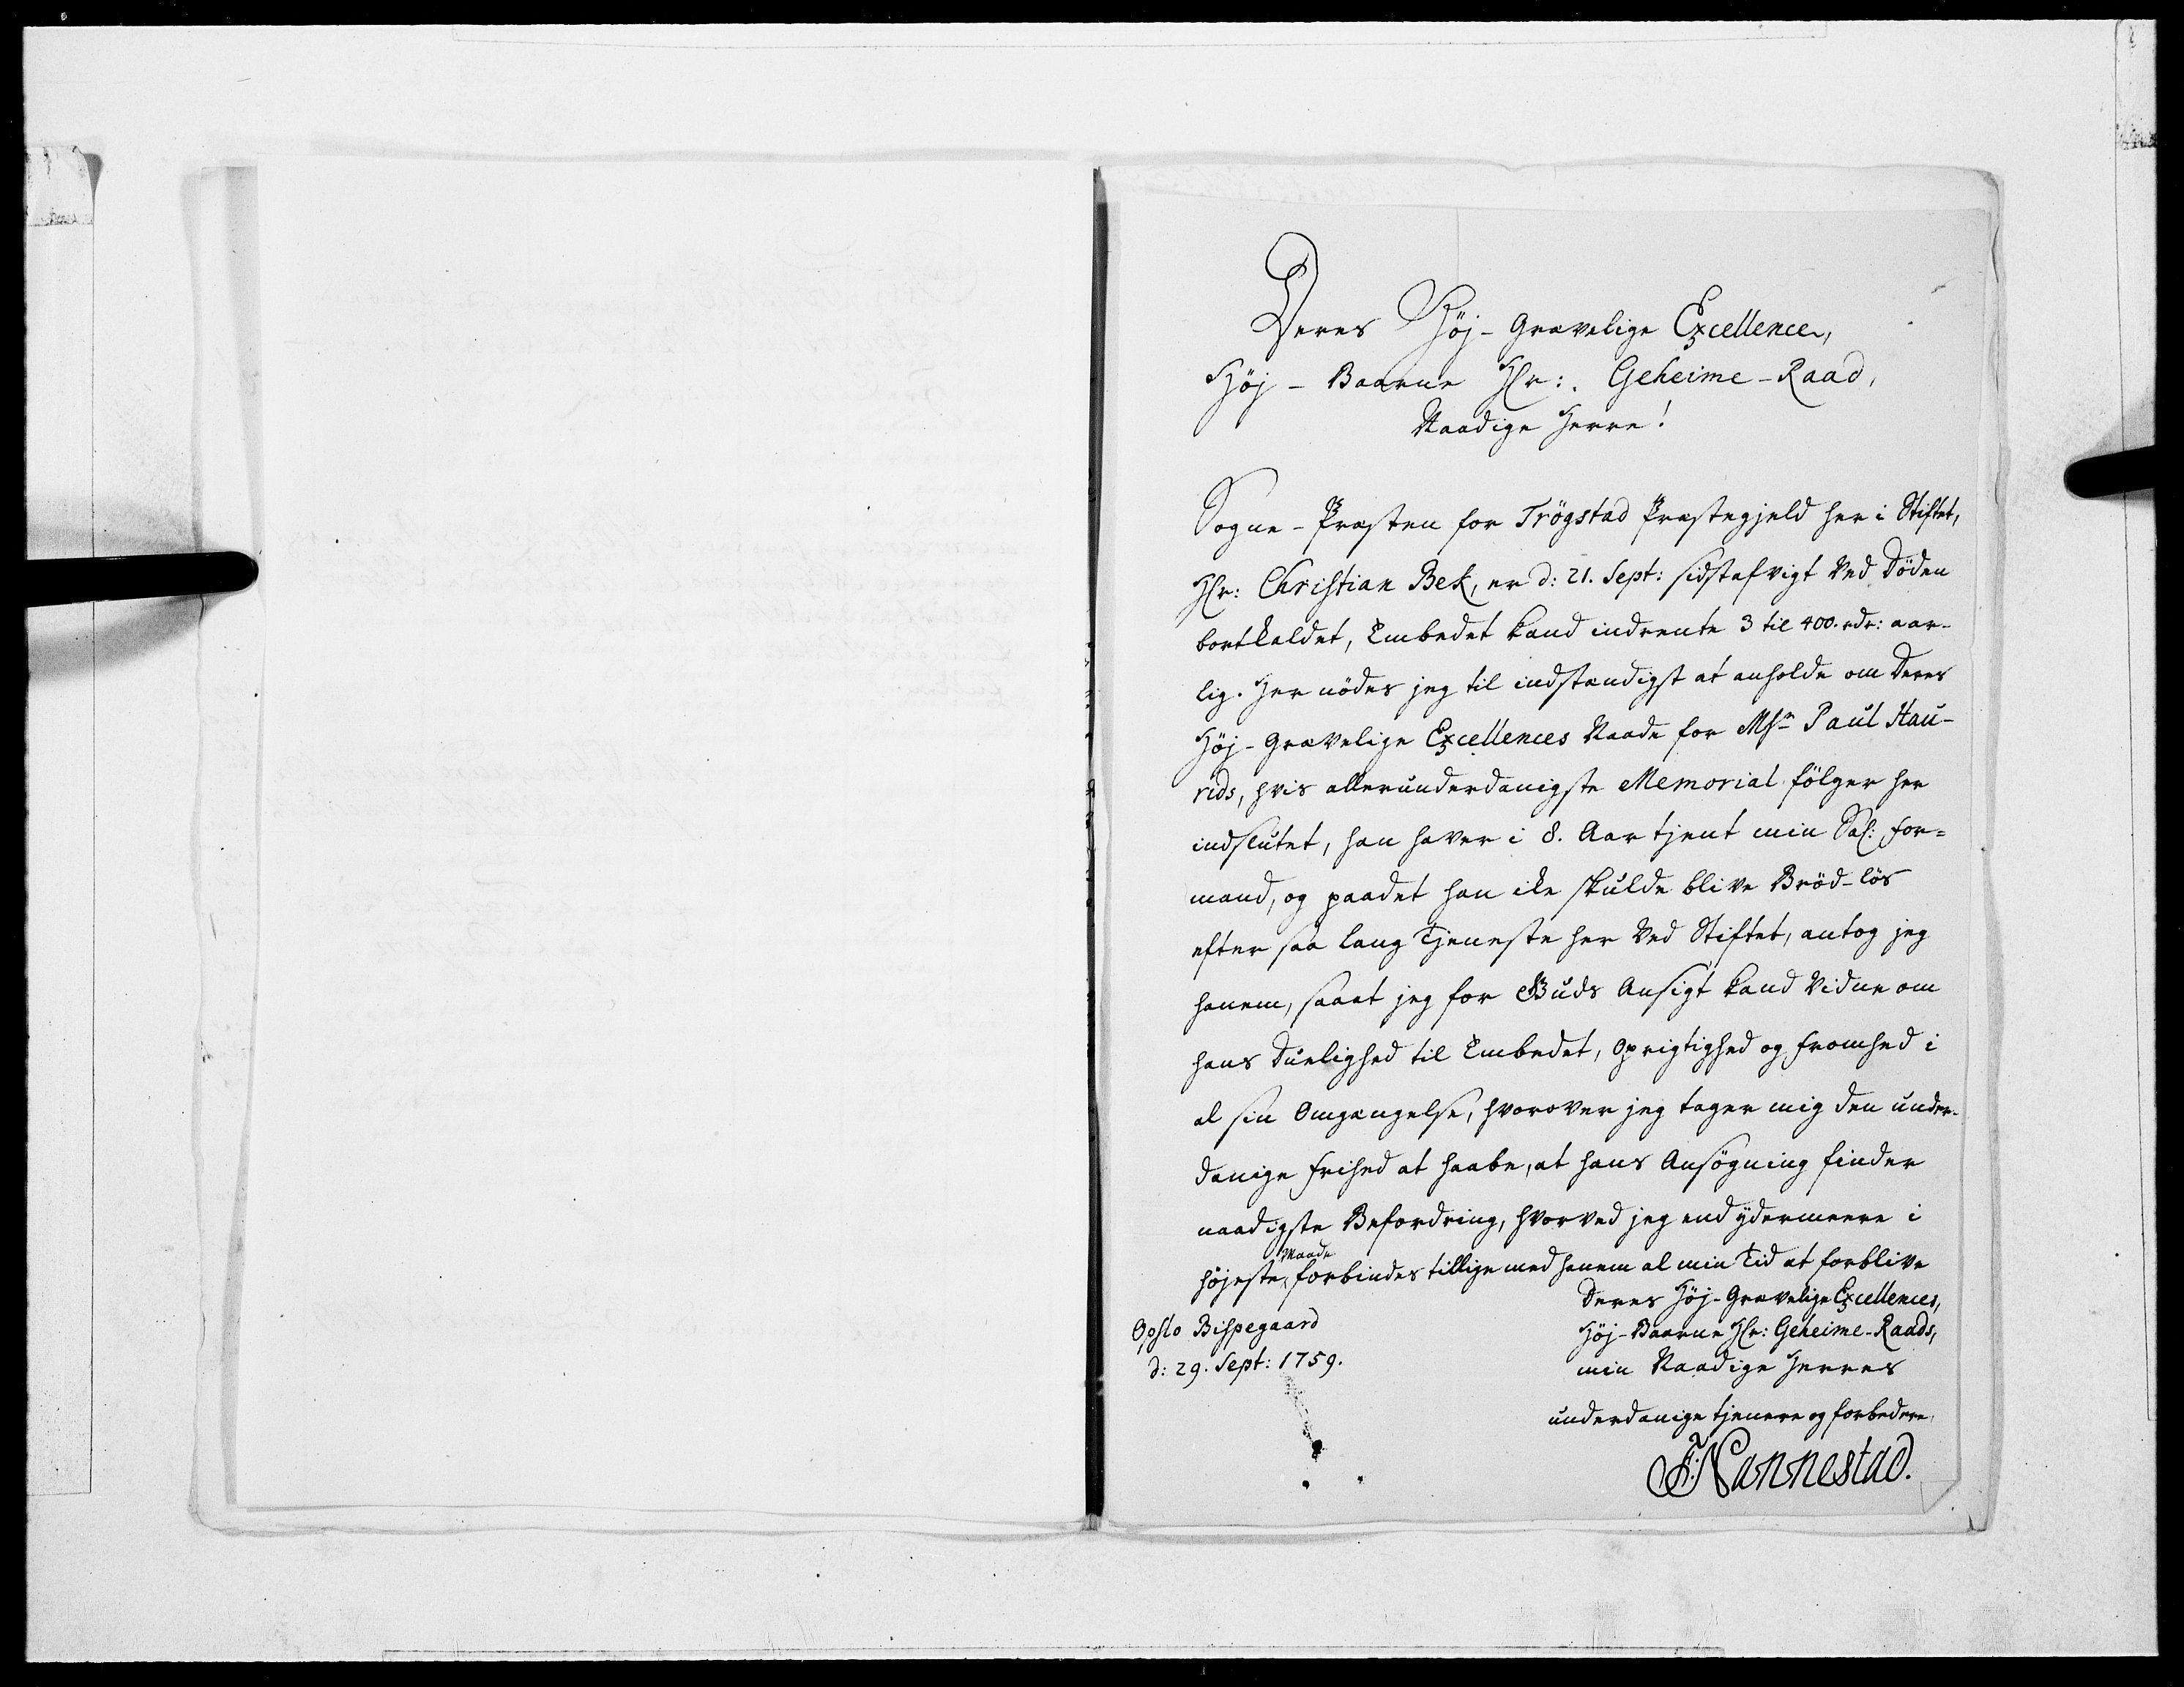 Deres Høj-Grævelige Excellence,
Høj-Baarne Hr: Geheime-Raad,
Naadige Herre!
Sogne-Præsten for Trögstad Præstegjeld her i Stiftet,
Hr: Christian Bek, er d: 21. Sept: sidstafvigt ved Döden
bortkaldet, Embedet kand indrente 3 til 400. rdr: aar-
lig. Her nödes jeg til indstændigst at anholde om Deres
Høj-Grævelige Excellences Naade for Msr Paul Hau-
rids, hvis allerunderdanigste Memorial fölger her
indslutet, han haver i 8. Aar tjent min Sal: For=
mand, og paadet han ike skulde blive Bröd-lös
efter saa lang Tjeneste her ved Stiftet, antog jeg
hanem, saaat jeg for Guds Ansigt kand vidne om
hans Duelighed til Embedet, Oprigtighed og Fromhed i
al sin Omgængelse, hvorover jeg tager mig den under-
danige Frihed at haabe, at hans Ansögning finder
naadigste Befordring, hvorved jeg end ydermeere i
höjeste Maade forbindes tillige med hanem al min Tid at forblive
Deres Høj-Grævelige Excellences,
Høj-Baarne Hr: Geheime-Raads,
min Naadige Herres
underdanige tjenere og forbedere,
F: Nannestad.
Opslo Bispegaard
d: 29. Sept: 1759.